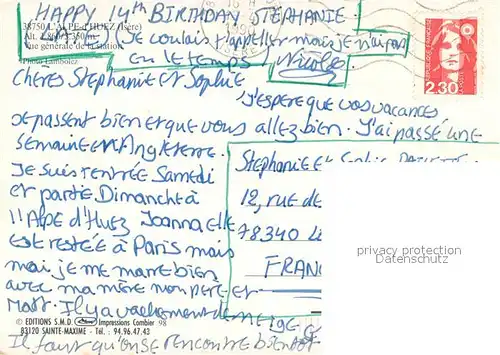 HAPPY 14th BIRTHDAY STEPHANIE
38750 L'ALPE-d'HUEZ (Isère)
Alt. 1.860/3.350 m
Vue générale de la Station
Photo Lamboley
Je voulais t'appeller mais je n'ai pas
eu le temps Nicoles
2.30
Chères Stephanie et Sophie
J'espère que vos vacances
se passent bien et que vous allez bien. J'ai passé une
semaine en Angleterre.
Je suis rentrée Samedi
et partie Dimanche à
l'Alpe d'Huez Joanna elle
est restée à Paris mais
moi je me marre bien
avec ma mère mon père et
Matt. Il y a vachement de neige
Il faut qu'on se rencontre bientôt
Stephanie et Sophie
12, rue de
78340
FRANC
privacy protection
Datenschutz
© EDITIONS S.M.D. Impressions Combier 98
83120 SAINTE-MAXIME - Tél. : 94.96.47.43